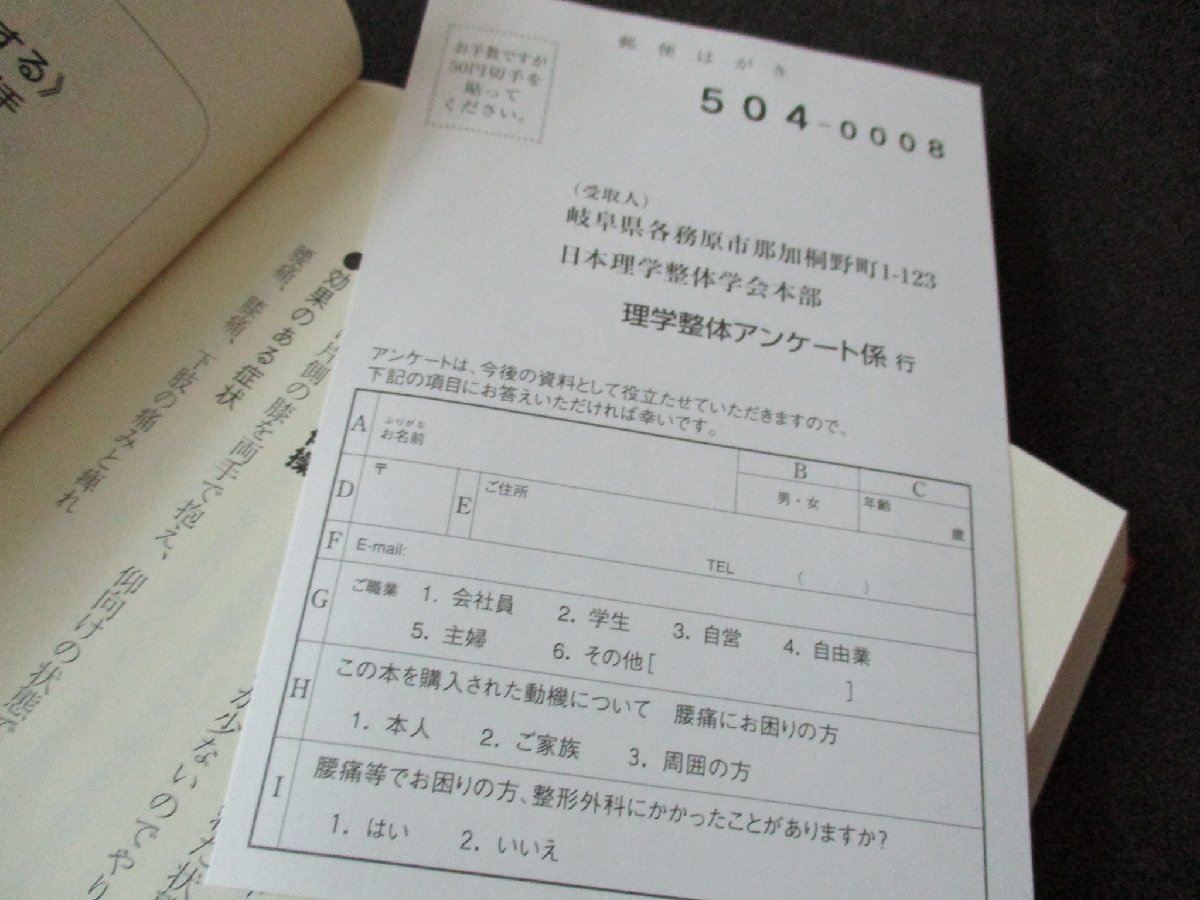 郵便はがき
お手数ですが
50円切手を
貼って
ください。
504-0008
(受取人)
岐阜県各務原市那加桐野町1-123
日本理学整体学会本部
理学整体アンケート係 行
アンケートは、今後の資料として役立たせていただきますので、
下記の項目にお答えいただければ幸いです。
A ふりがな
お名前
B
男・女
C
年齢 歳
D 〒
E ご住所
F E-mail: TEL ( )
G ご職業 1. 会社員 2. 学生 3. 自営 4. 自由業
5. 主婦 6. その他[ ]
H この本を購入された動機について 腰痛にお困りの方
1. 本人 2. ご家族 3. 周囲の方
I 腰痛等でお困りの方、整形外科にかかったことがありますか?
1. はい 2. いいえ
する》
手
●効果のある症状
腰痛、膝痛、下肢の痛みと痺れ
片側の膝を両手で抱え、仰向けの状態で
が少ないのでやり